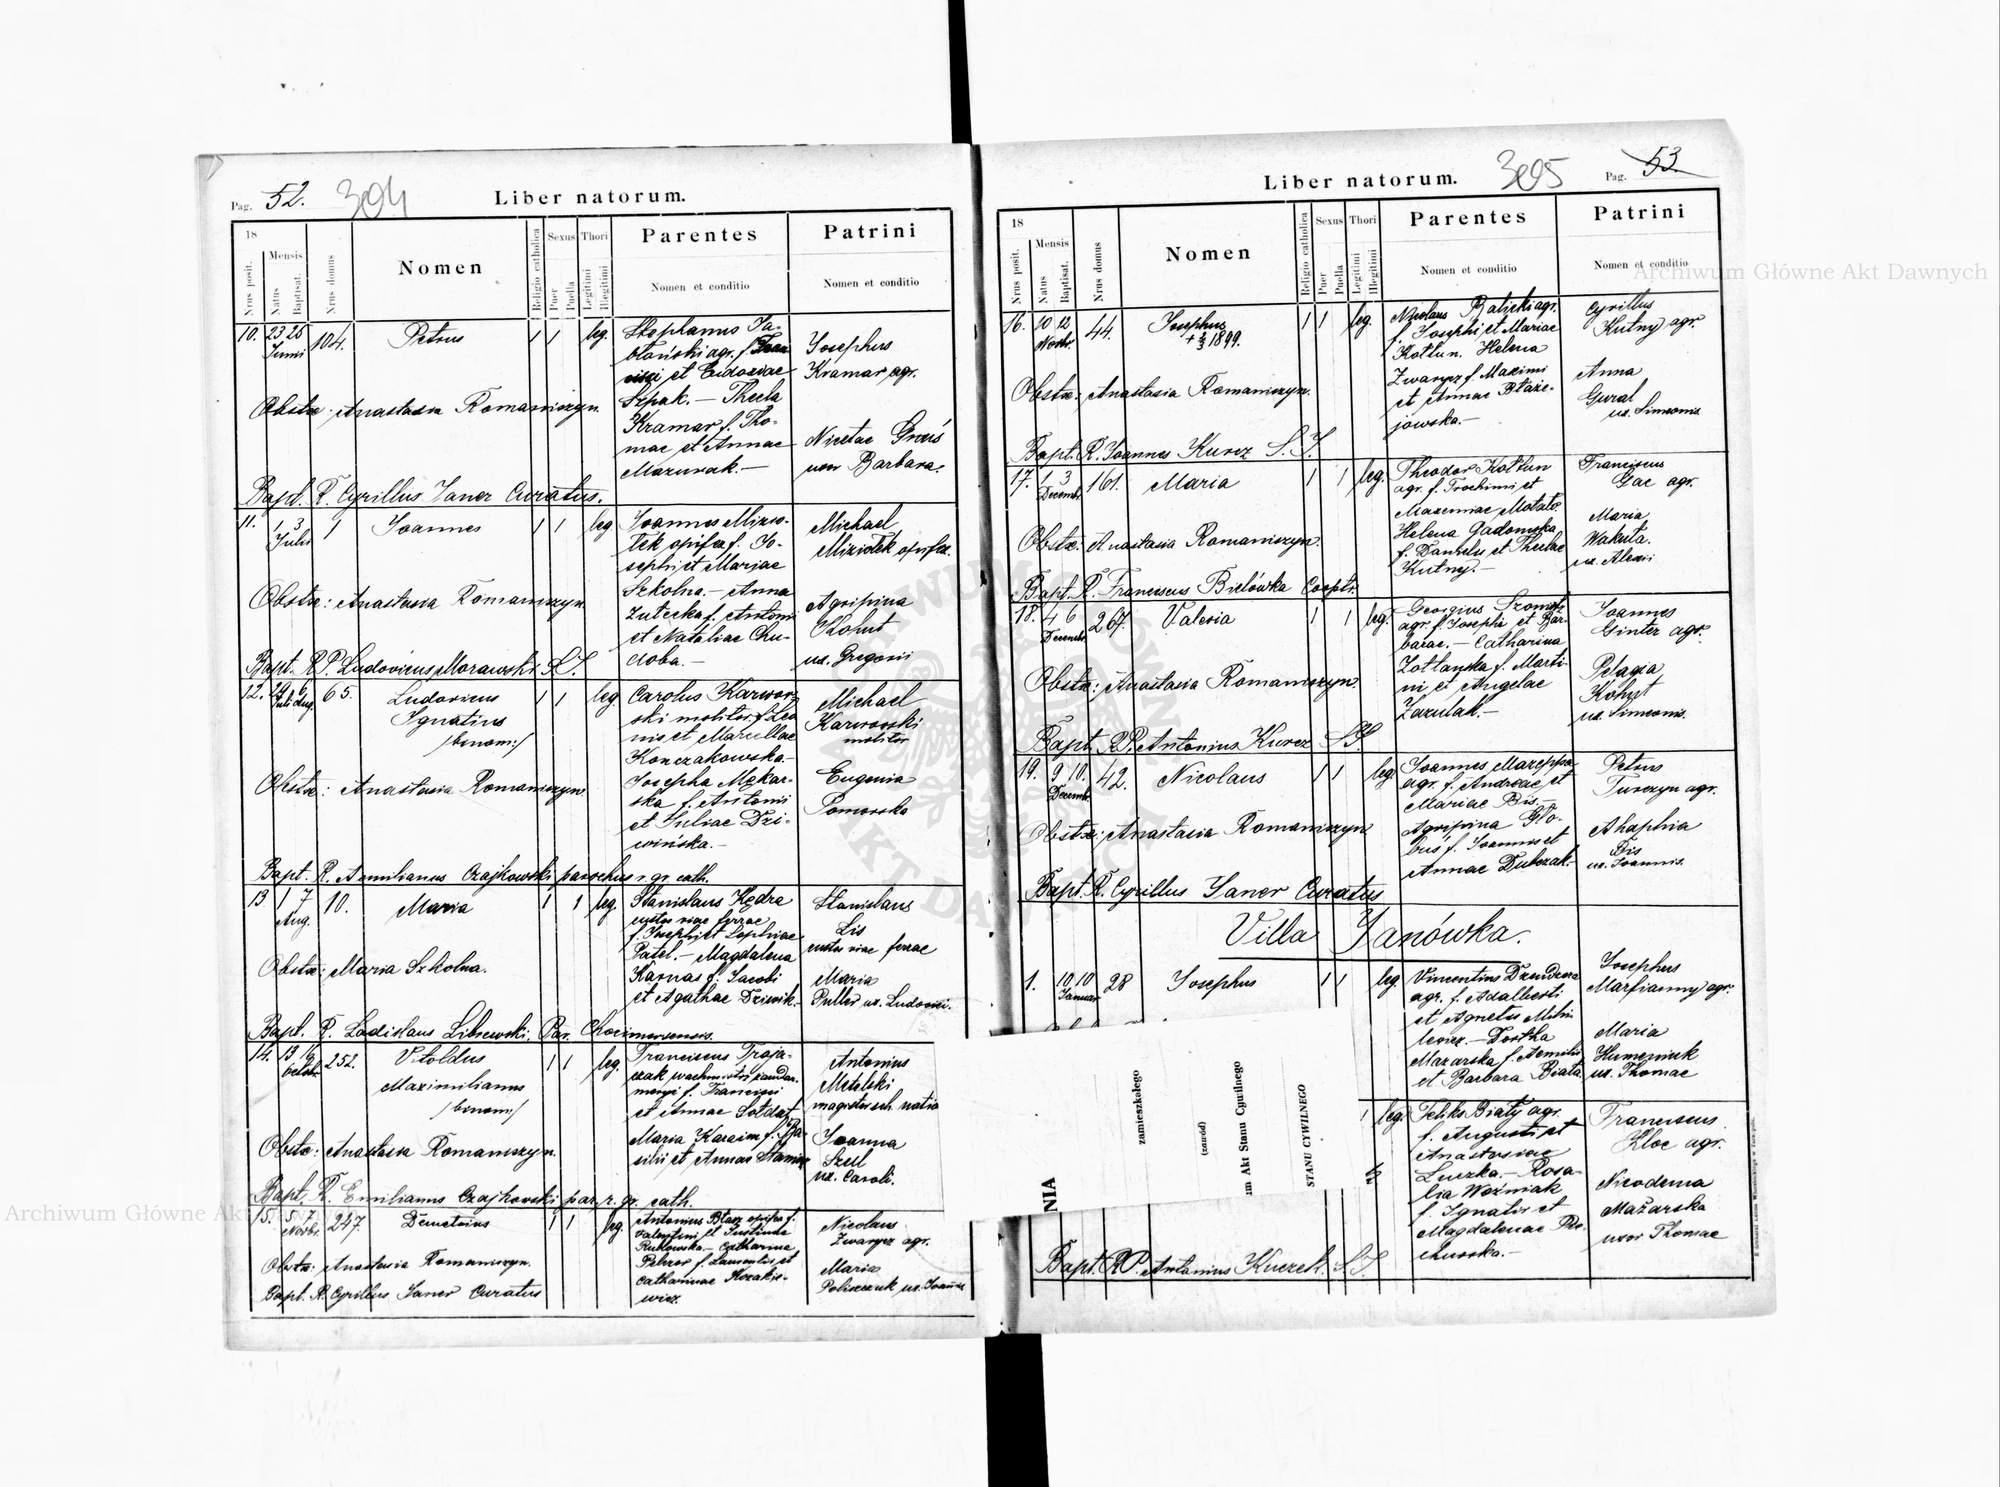 Pag. 52.
304
Liber natorum.
18
Nrus posit.
Mensis
Natus
Baptisat.
Nrus domus
Nomen
Religio catholica
Sexus
Puer
Puella
Thori
Legitimi
Illegitimi
Parentes
Nomen et conditio
Patrini
Nomen et conditio
10. 23 26 104. Petrus 1 1 leg.
Junii
Stephanus Ja-
błoński agr. f.
et Eudoxiae
Szpak. — Thecla
Kramar f. Tho-
mae et Annae
Mazurak. —
Josephus
Kramar agr.
Nicetae
uxor Barbara.
Obstx: Anastasia Romaniszyn.
Bapt. R. Cyrillus Janer Curatus.
11. 1 3 1 Joannes 1 1 leg.
Julii
Joannes Mizio-
łek opifex f. Jo-
sephi et Mariae
Szkolna. — Anna
Żutecka f. Antonii
et Nataliae Chu-
doba. —
Michael
Miziołek opifex.
Agripina
Kohut
ux. Gregorii
Obstx: Anastasia Romaniszyn.
Bapt. R.P. Ludovicus Morawski S.J.
12. 65. Ludovicus 1 1 leg.
Juli Aug.
Ignatius
/binom:/
Carolus Karwow-
ski molitor f. Leo
nis et Marcellae
Konczakowska. —
Josepha Mękar-
ska f. Antonii
et Juliae Dzi-
wińska. —
Michael
Karwowski
molitor
Eugenia
Pomorska
Obstx: Anastasia Romaniszyn.
Bapt. R. Aemilianus Czajkowski parochus r. gr. cath.
13 1 7 10. Maria 1 1 leg.
Aug.
Stanislaus Kędra
custos viae ferrae
f. Josephi et Sophiae
Patel. — Magdalena
Karnas f. Jacobi
et Agathae Dziwik. —
Stanislaus
Lis
custos viae ferrae
Maria
Puller ux. Ludovici.
Obstx: Maria Szkolna.
Bapt. R. Ladislaus Librewski. Par. Chocimirensis.
14. 13 16 252. Vitoldus 1 1 leg.
Octobr.
Maximilianus
/binom:/
Franciscus Troja-
czak wachmistrz żandar-
meryi f. Francisci
et Annae Sołdat,
Maria Karaim f. Ba-
silii et Annae
Antonius
Metelski
magister sch. natio
Joanna
Szell
ux. Caroli.
Obstx: Anastasia Romaniszyn.
Bapt. R. Emilianus Czajkowski par. r. gr. cath.
15. 5 7 247. Demetrius 1 1 leg.
Novbr.
Antonius Błasz opifex f.
Valentini et Justinae
Rublowska — Catharina
Pelzor f. Laurentii et
Catharinae Kozakie-
wicz.
Nicolaus
Zwarycz agr.
Maria
Poliszczuk ux. Joannis
Obstx: Anastasia Romaniszyn.
Bapt. R. Cyrillus Janer Curatus
Liber natorum.
305
Pag. 53.
18
Nrus posit.
Mensis
Natus
Baptisat.
Nrus domus
Nomen
Religio catholica
Sexus
Puer
Puella
Thori
Legitimi
Illegitimi
Parentes
Nomen et conditio
Patrini
Nomen et conditio
16. 10 12 44. Josephus 1 1 leg.
Novbr.
1899.
Nicolaus Balicki agr.
f. Josephi et Mariae
Kołtun. Helena
Zwarycz f. Maximi
et Annae Błaże-
jowska. —
Cyrillus
Kutny agr.
Anna
Gural
ux. Simeonis
Obstx: Anastasia Romaniszyn.
Bapt. R. Joannes Kurcz S. J.
17. 1 3 161. Maria 1 1 leg.
Decembr.
Theodor Kołtun
agr. f. Trochimi et
Maxenniae Motato.
Helena Gadomska
f. Danielis et Theclae
Kutny. —
Franciscus
Gac agr.
Maria
Wakuta.
ux. Alexii
Obstx: Anastasia Romaniszyn.
Bapt. R. Franciscus Bielówka Cooptr.
18. 4 6 267. Valeria 1 1 leg.
Decembr.
Georgius
agr. f. Josephi et Bar-
barae. — Catharina
Zotlanska f. Marti-
ni et Angelae
Zazulak. —
Joannes
Ginter agr.
Pelagia
Kohut
ux. Simeonis.
Obstx: Anastasia Romaniszyn.
Bapt. R.P. Antonius Kurcz S.J.
19. 9 10. 42. Nicolaus 1 1 leg.
Decembr.
Joannes Mazeppa
agr. f. Andreae et
Mariae Bis. —
Agripina Gło-
bus f. Joannis et
Annae Dubczak. —
Petrus
Turczyn agr.
Ahaphia
Bis
ux. Joannis.
Obstx: Anastasia Romaniszyn.
Bapt. R. Cyrillus Janer Curatus
Villa Janówka.
1. 10 10 28 Josephus 1 1 leg.
Januar
Vincentius Dzendzera
agr. f. Adalberti
et Agnetis Mitni
lewicz. — Dorotha
Mazarska f. Aemilii
et Barbara Biała.
Josephus
Marfianny agr.
Maria
Humeniuk
ux. Thomae
1 leg.
Feliks Biały agr.
f. Augusti et
Anastasiae
Luczka. — Rosa-
lia Woźniak
f. Ignatii et
Magdalenae
Franciscus
Kloc agr.
Nicodema
Mażarska
uxor Thomae
zamieszkałego
(zawód)
m Akt Stanu Cywilnego
STANU CYWILNEGO
NIA
Bapt. R.P. Antonius Kurzek. S.J.
Archiwum Główne Akt Dawnych
Archiwum Główne Akt Dawnych
ARCHIWUM GŁÓWNE AKT DAWNYCH